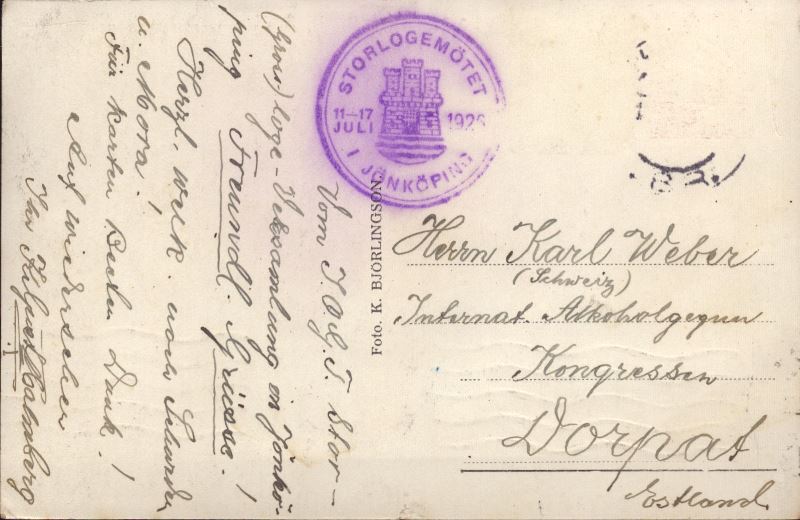 Vom I.O.G.T. Stor-
(Gross) loge-Versamlung in Jönkö-
ping Freundl. Grüsse!
Herzl. willk. nach Schweden
u. Mora!
Für Karten Besten Dank!
Auf wiedersehen
Ihr Holmberg
STORLOGEMÖTET
11–17
JULI
1926
I JÖNKÖPING
Foto. K. BJÖRLINGSON.
Herrn Karl Weber
(Schweiz)
Internat. Alkoholgegnen
Kongressen
Dorpat
Estland.